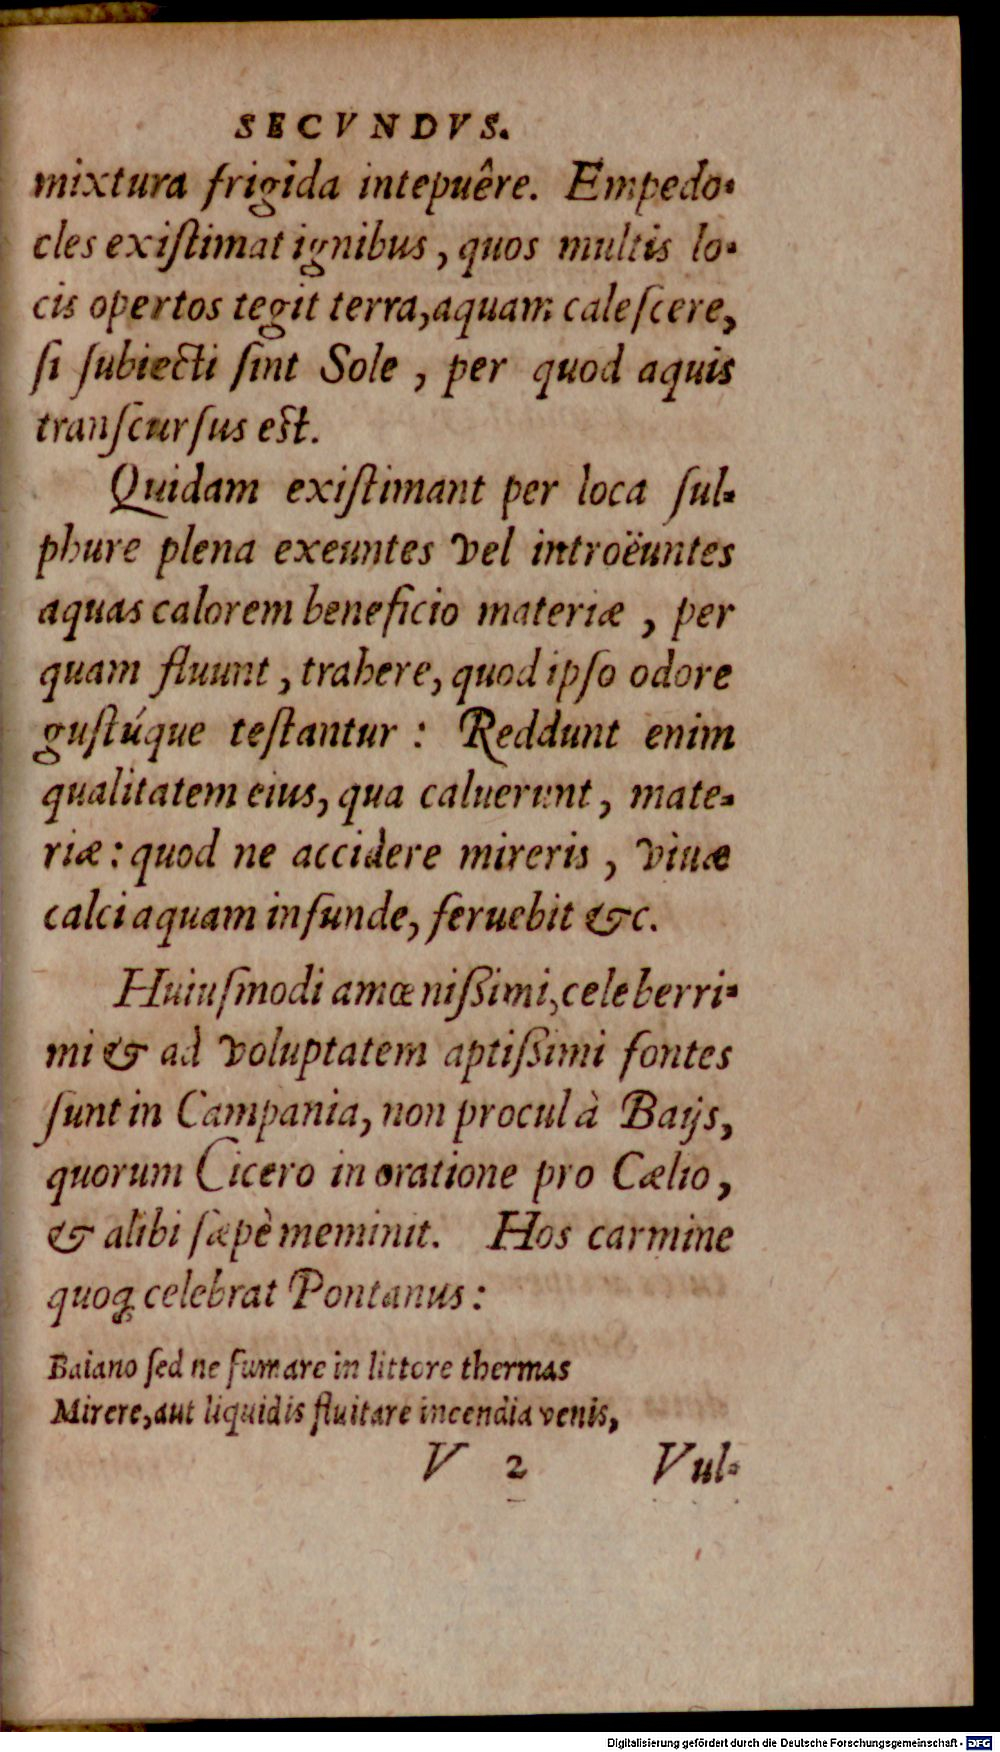 SECVNDVS.
mixtura frigida intepuêre. Empedo-
cles exiſtimat ignibus, quos multis lo-
cis opertos tegit terra, aquam caleſcere,
ſi ſubiecti ſint Sole, per quod aquis
tranſcurſus eſt.
Quidam exiſtimant per loca ſul-
phure plena exeuntes vel introëuntes
aquas calorem beneficio materiæ, per
quam fluunt, trahere, quod ipſo odore
guſtúque teſtantur: Reddunt enim
qualitatem eius, qua caluerunt, mate-
riæ: quod ne accidere mireris, viuæ
calci aquam infunde, feruebit &c.
Huiuſmodi amœniſſimi, celeberri-
mi & ad voluptatem aptiſſimi fontes
ſunt in Campania, non procul à Baijs,
quorum Cicero in oratione pro Cælio,
& alibi ſæpè meminit. Hos carmine
quoq; celebrat Pontanus:
Baiano ſed ne fumare in littore thermas
Mirere, aut liquidis fluitare incendia venis,
V 2 Vul-
Digitalisierung gefördert durch die Deutsche Forschungsgemeinschaft - DFG